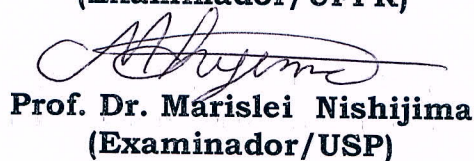 (Examinador/UFPR)
Prof. Dr. Marislei Nishijima
(Examinador/USP)